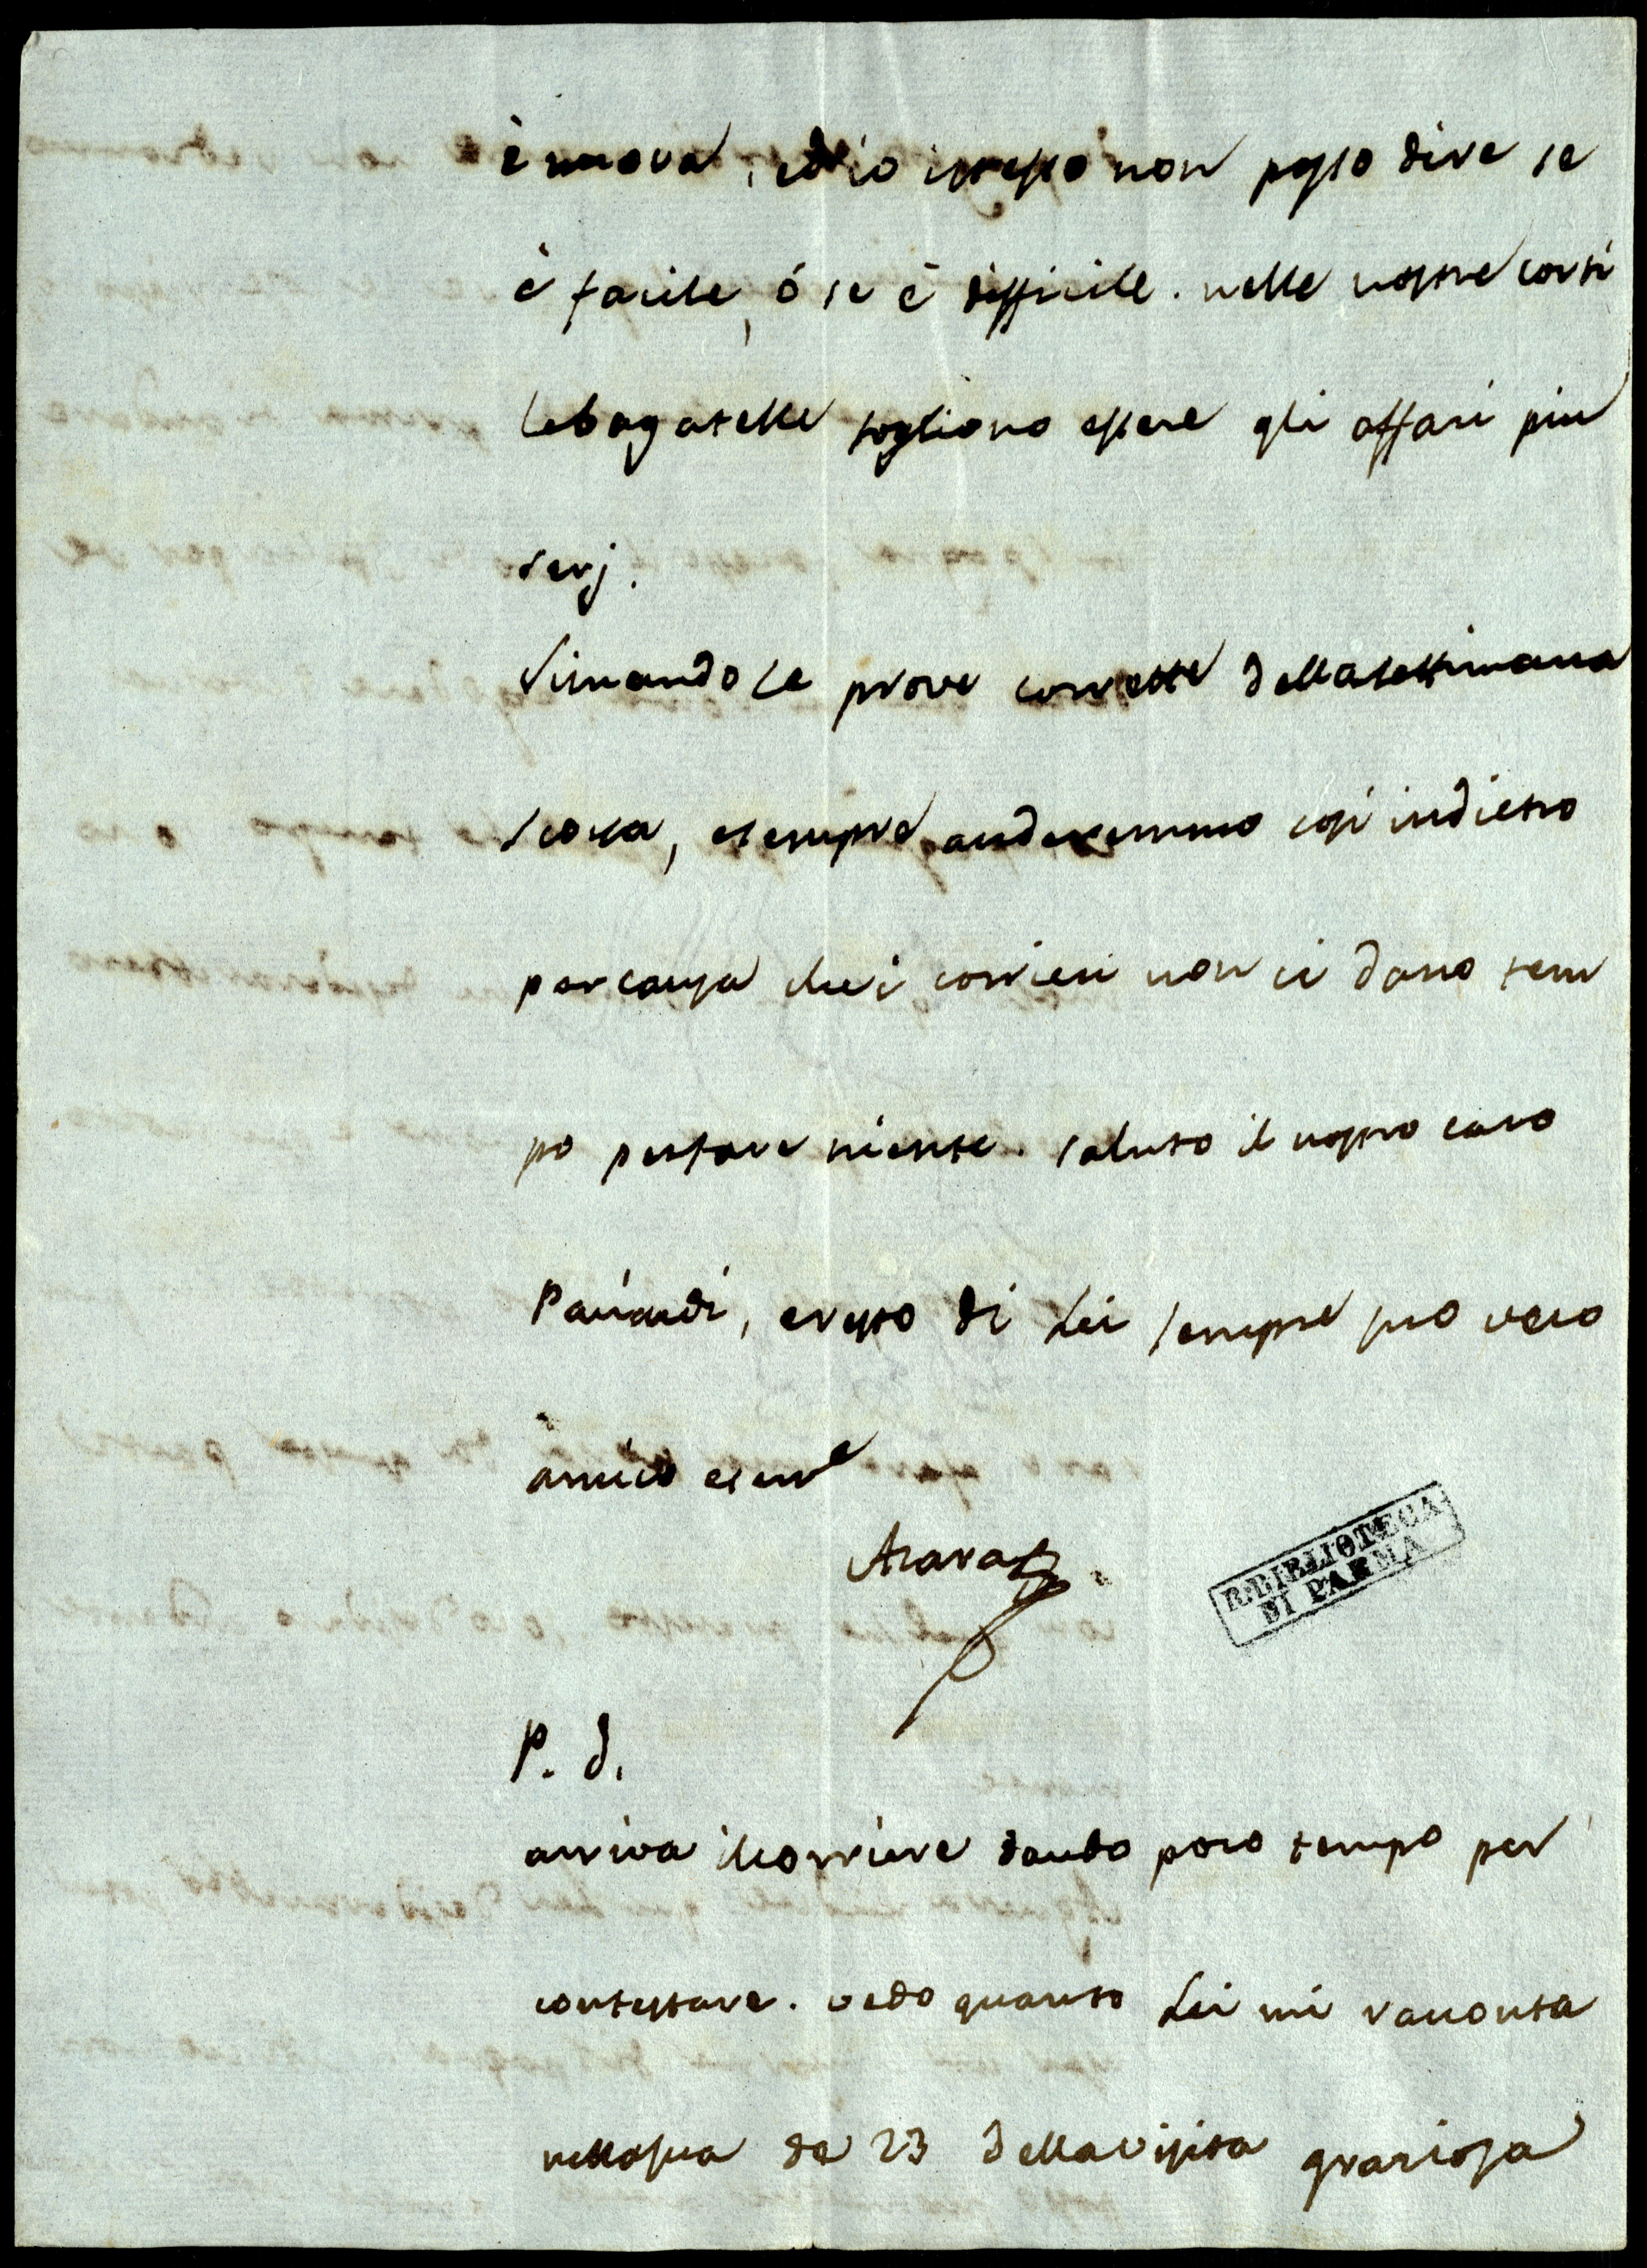 è nuova, ed io istesso non posso dire se
è facile, ó se è difficile. nelle nostre corti
le bagatelle sogliono essere gli affari piu
serj.
Rimando le prove corrette della settimana
scorsa, e sempre anderemmo cosi indietro
per causa che i corrieri non ci dano tem
po per fare niente. saluto il nostro caro
Paciaudi, e resto di Lei sempre suo vero
amico e serve
Azara
R. BIBLIOTECA
DI PARMA
P. S.
arriva il corriere dando poco tempo per
contestare. vedo quanto Lei mi racconta
nella sua de 23 della visita graziosa